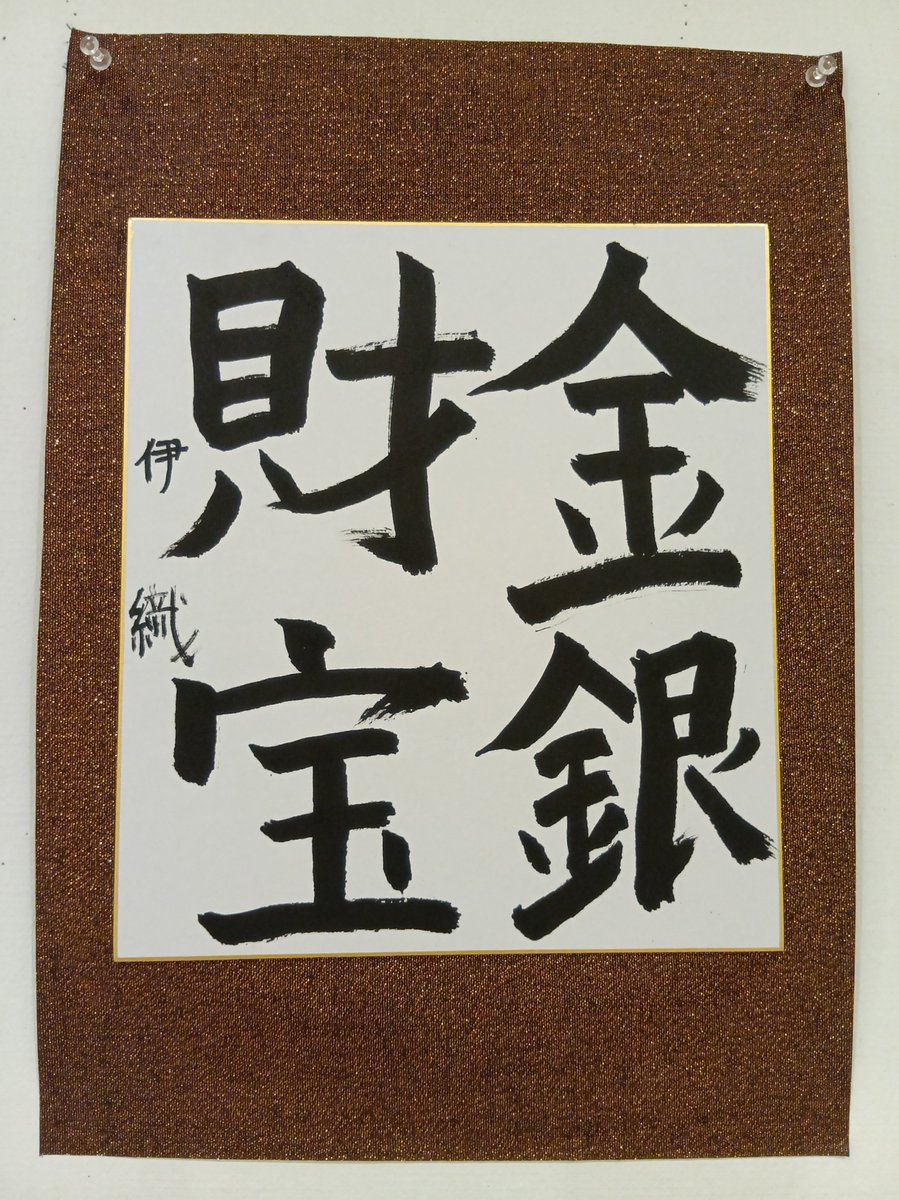 金銀
財宝
伊織